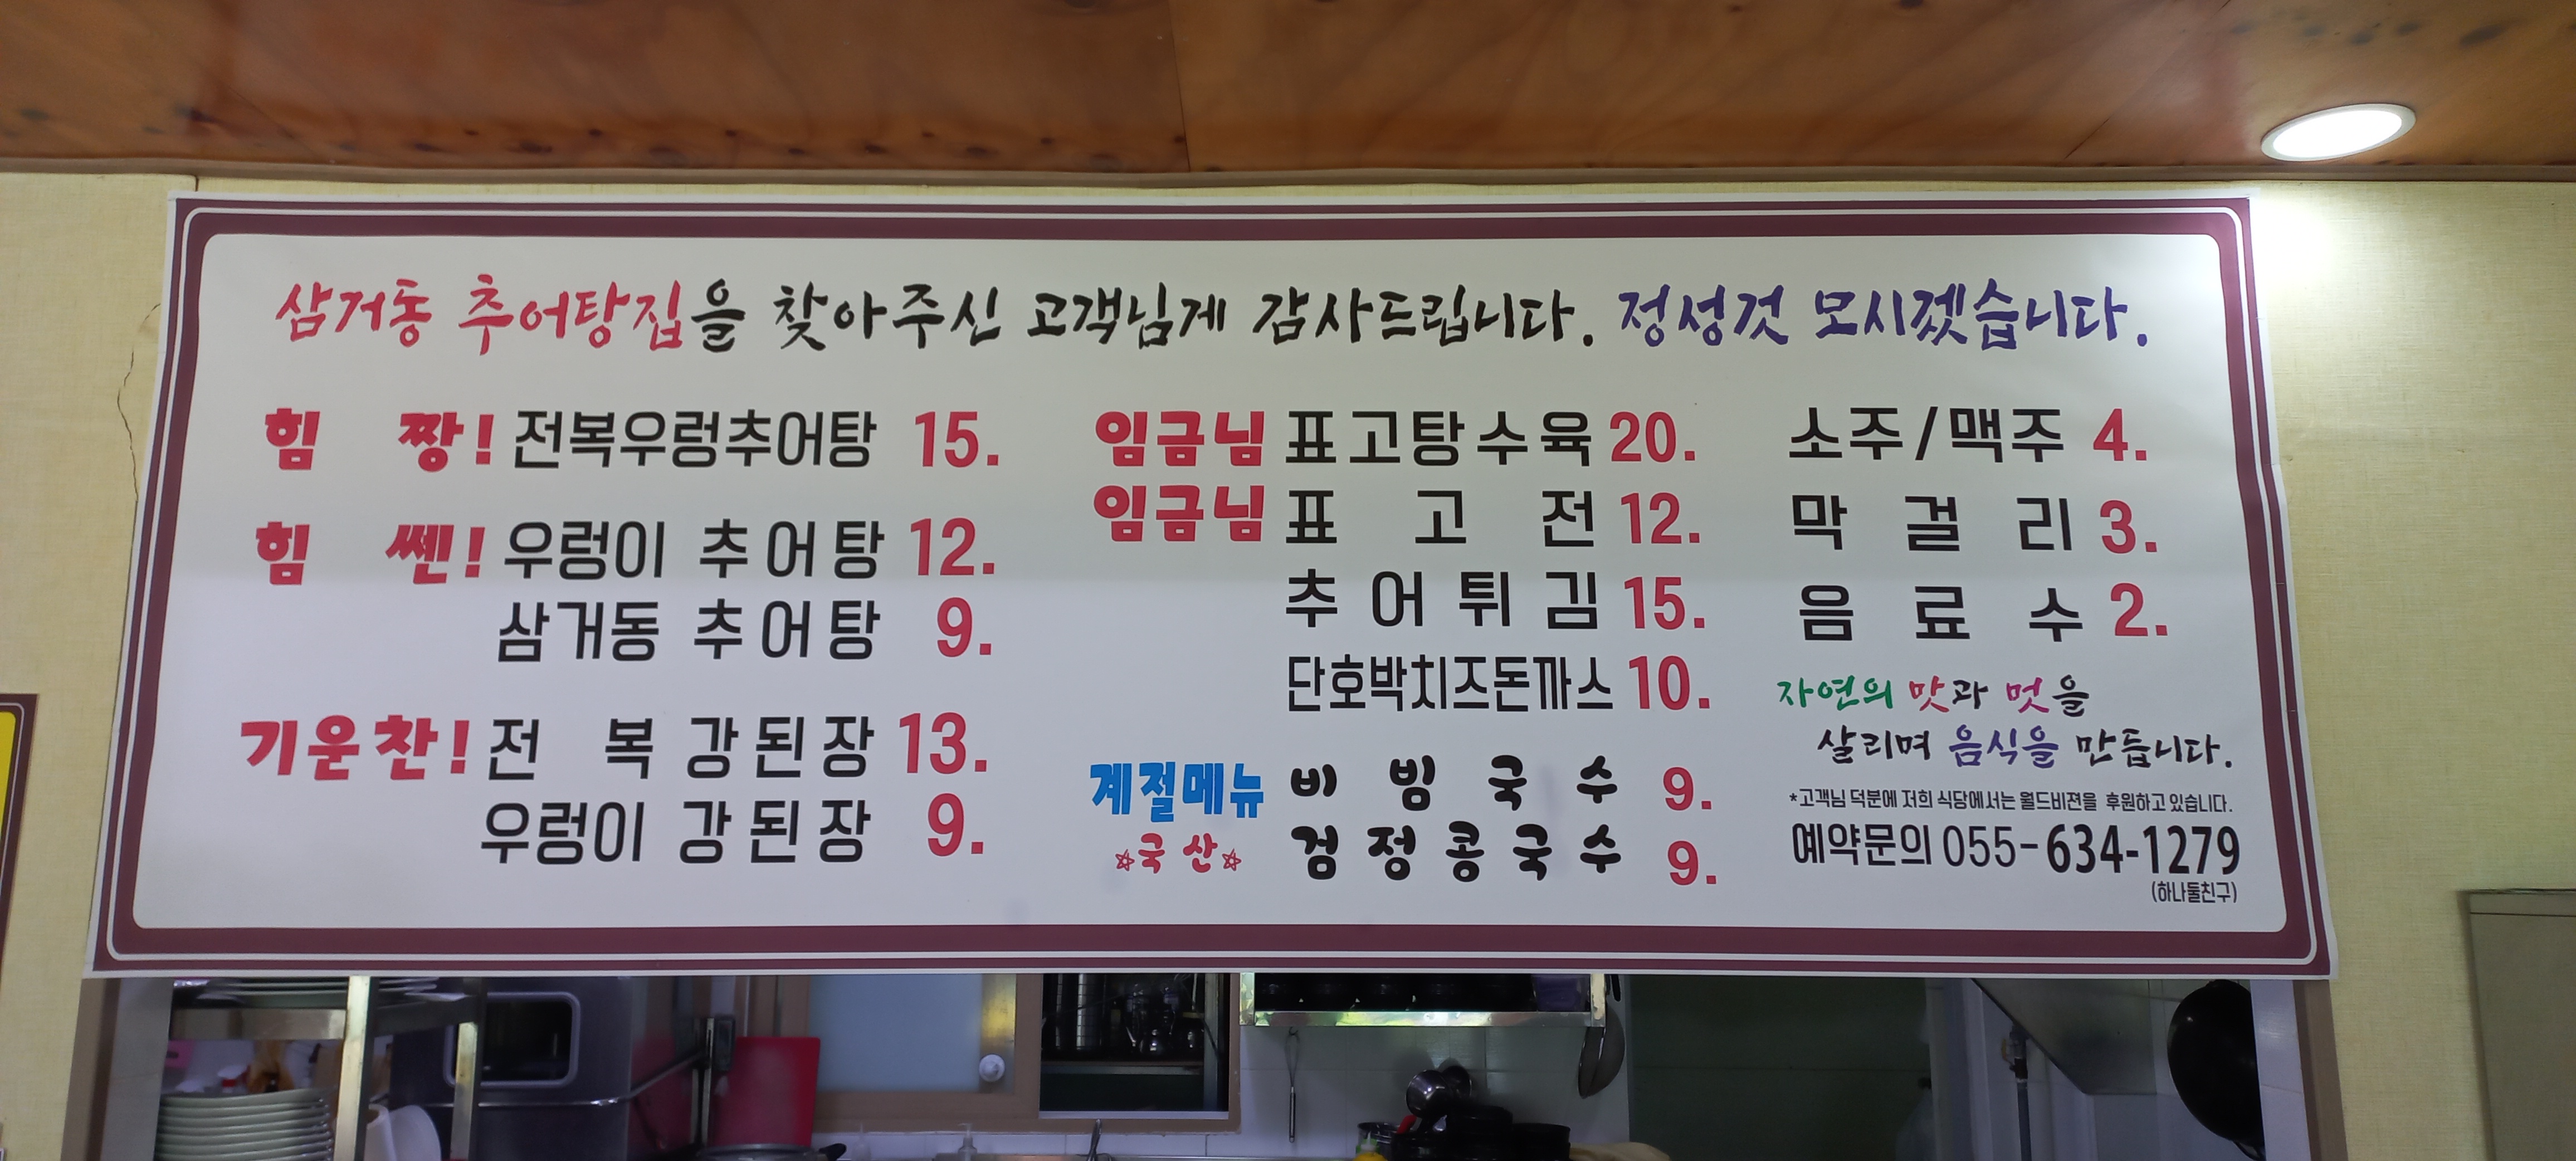 삼거동 추어탕집을 찾아주신 고객님게 감사드립니다. 정성것 모시겠습니다.
힘 짱! 전복우렁추어탕 15.
힘 쎈! 우렁이 추어탕 12.
삼거동 추어탕 9.
기운찬! 전복 강된장 13.
우렁이 강된장 9.
임금님 표고탕수육 20.
임금님 표고전 12.
추어튀김 15.
단호박치즈돈까스 10.
계절메뉴 비빔국수 9.
☆국산☆ 검정콩국수 9.
소주/맥주 4.
막걸리 3.
음료수 2.
자연의 맛과 멋을
살리며 음식을 만듭니다.
*고객님 덕분에 저희 식당에서는 월드비젼을 후원하고 있습니다.
예약문의 055-634-1279
(하나둘친구)